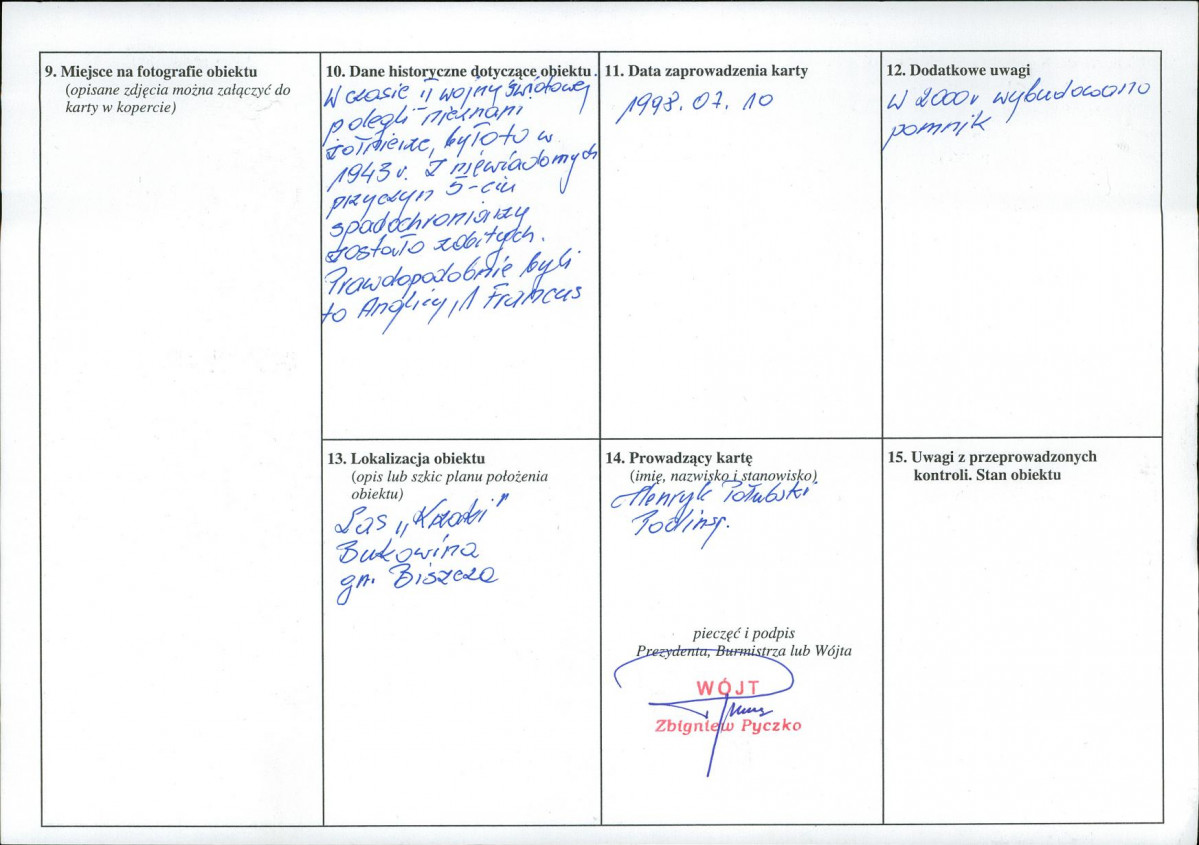 9. Miejsce na fotografie obiektu
(opisane zdjęcia można załączyć do
karty w kopercie)
10. Dane historyczne dotyczące obiektu.
W czasie II wojny światowej
polegli nieznani
żołnierze, było to w
1943 r. Z niewiadomych
przyczyn 5-ciu
spadochroniarzy
zostało zabitych.
Prawdopodobnie byli
to Anglicy, 1 Francus
11. Data zaprowadzenia karty
1998.07.10
12. Dodatkowe uwagi
W 2000r wybudowano
pomnik
13. Lokalizacja obiektu
(opis lub szkic planu położenia
obiektu)
Las „
Bukowina
gm. Biszcza
14. Prowadzący kartę
(imię, nazwisko i stanowisko)
Henryk
Podinsp.
pieczęć i podpis
Prezydenta, Burmistrza lub Wójta
WÓJT
Zbigniew Pyczko
15. Uwagi z przeprowadzonych
kontroli. Stan obiektu